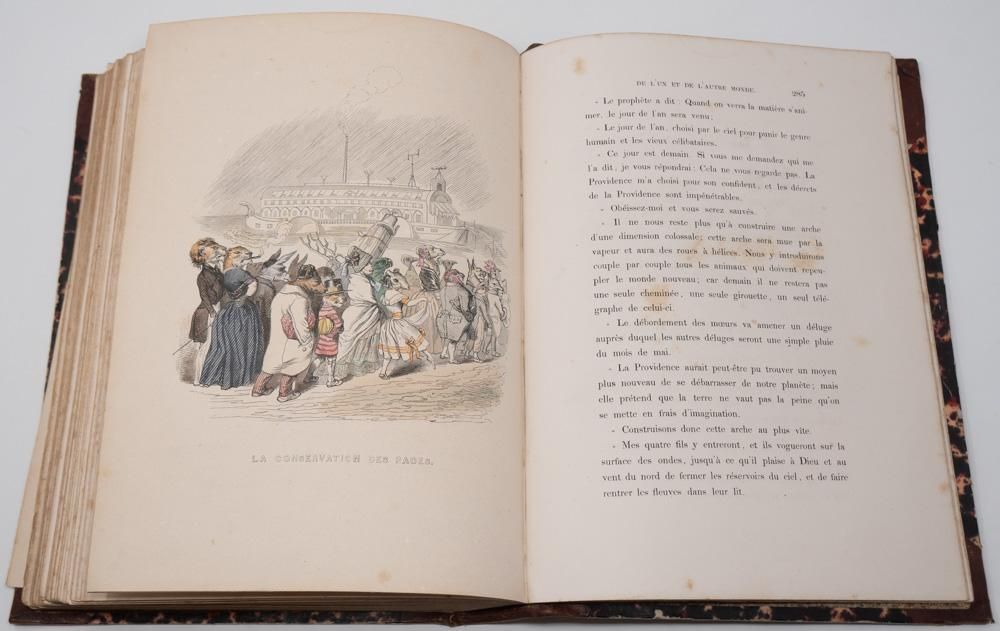 LA CONSERVATION DES RACES.
DE L'UN ET DE L'AUTRE MONDE.
285
- Le prophète a dit : Quand on verra la matière s'ani-
mer, le jour de l'an sera venu;
- Le jour de l'an, choisi par le ciel pour punir le genre
humain et les vieux célibataires.
- Ce jour est demain. Si vous me demandez qui me
l'a dit, je vous répondrai : Cela ne vous regarde pas. La
Providence m'a choisi pour son confident, et les décrets
de la Providence sont impénétrables.
- Obéissez-moi et vous serez sauvés.
- Il ne nous reste plus qu'à construire une arche
d'une dimension colossale; cette arche sera mue par la
vapeur et aura des roues à hélices. Nous y introduirons
couple par couple tous les animaux qui doivent repeu-
pler le monde nouveau; car demain il ne restera pas
une seule cheminée, une seule girouette, un seul télé-
graphe de celui-ci.
- Le débordement des mœurs va amener un déluge
auprès duquel les autres déluges seront une simple pluie
du mois de mai.
- La Providence aurait peut-être pu trouver un moyen
plus nouveau de se débarrasser de notre planète; mais
elle prétend que la terre ne vaut pas la peine qu'on
se mette en frais d'imagination.
- Construisons donc cette arche au plus vite.
- Mes quatre fils y entreront, et ils vogueront sur la
surface des ondes, jusqu'à ce qu'il plaise à Dieu et au
vent du nord de fermer les réservoirs du ciel, et de faire
rentrer les fleuves dans leur lit.